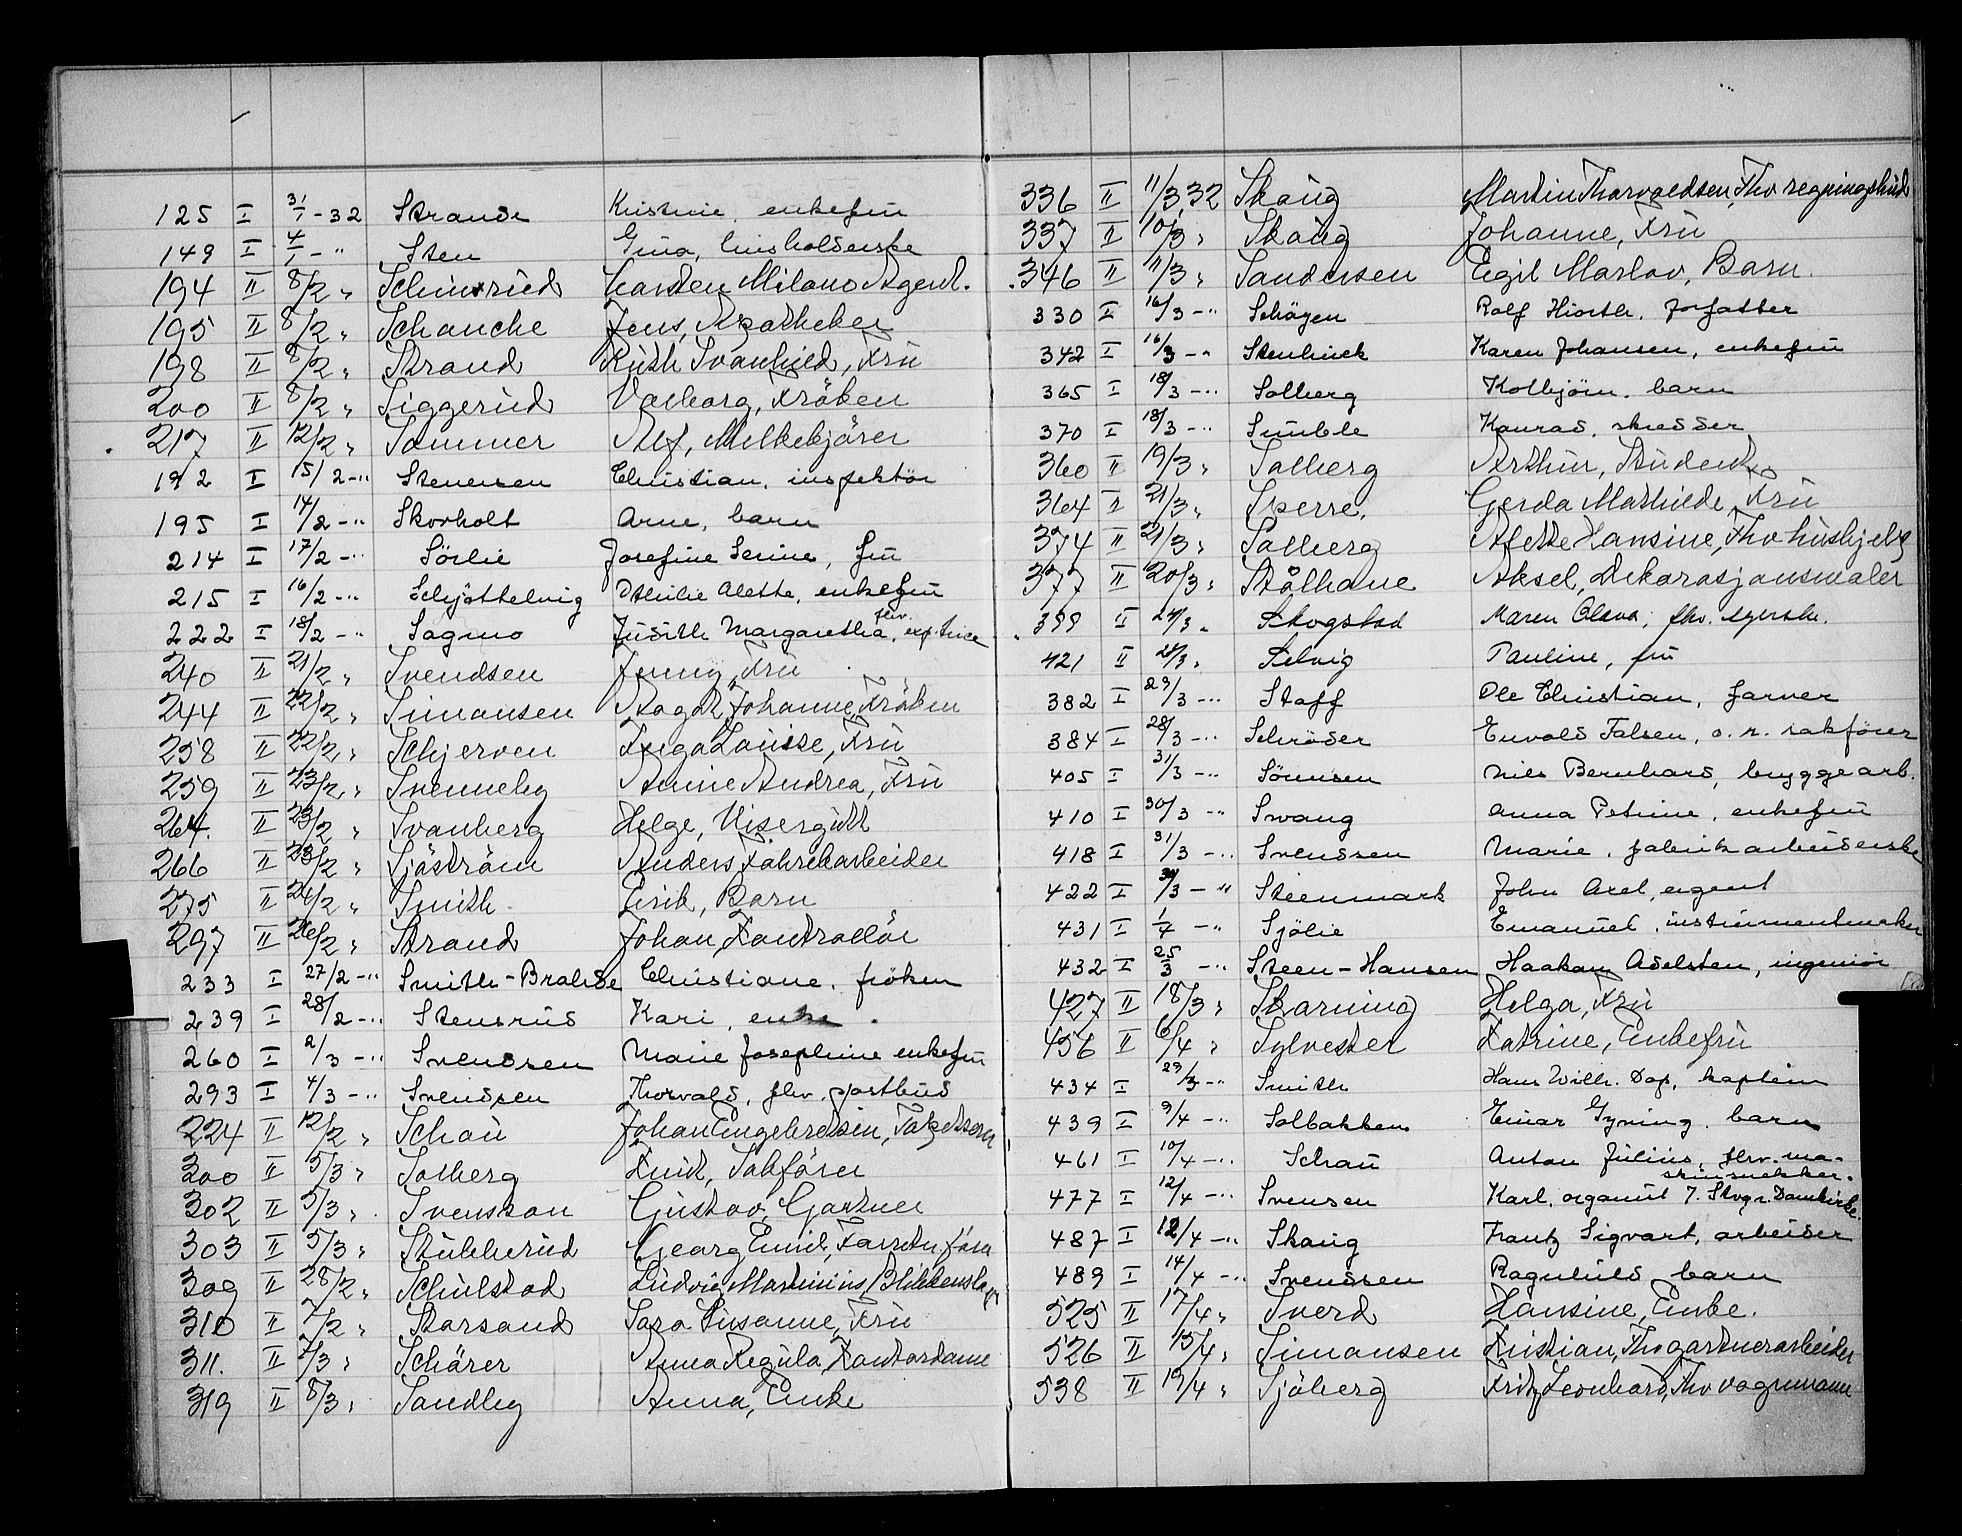 125 I 31/1-32 Strande Kristine, enkefru
149 I 4/1 - " Sten Gina, husholderske
194 II 8/2 " Schinsrud Carsten Milano Agent.
195 II 8/2 " Schanche Jens, Apotheker
198 II 8/2 " Strand Ruth Svanhild, Fru
200 II 8/2 " Siggerud Valborg, Fröken
217 II 12/2 " Sommer Alf, Melkekjörer
192 I 15/2 - " Stenersen Christian, inspektör
195 I 14/2 - " Skovholt Arne, barn
214 I 17/2 - " Sörlie Josefine Serine, fru
215 I 16/2 - " Schjöttelvig Othilie Alette, enkefru
222 I 18/2 - " Sagmo Judith Margaretha, fhv. exp.trice
240 II 21/2 " Svendsen Jenny, Fru
244 II 22/2 " Simonsen Aagot Johanne, Fröken
258 II 22/2 " Schjerven Inga Louise, Fru
259 II 23/2 " Svenneby Annie Andrea, Fru
264. II 23/2 " Svanberg Helge, Visergutt
266 II 23/2 " Sjöström Anders Fabrikarbeider
275 II 26/2 " Smith Eirik, Barn
297 II 26/2 " Strand Johan, Kontrollör
233 I 27/2 - " Smith-Brahde Christiane, fröken
239 I 28/2 - " Stensrud Kari, enke.
260 I 2/3 - " Svendsen Marie Josephine enkefru
293 I 4/3 - " Svendsen Thorvald, fhv. postbud
224 II 12/2 " Schou Johan Engebretsen,
300 II 5/3 " Solberg Knut, Sakförer
302 II 5/3 " Svensson Gustav, Gartner
303 II 5/3 " Stubberud Georg Emil,
309 II 28/2 " Schulstad Ludvig Martinius, Blikkenslager
310 II 7/2 " Storsand Sara Susanne, Fru
311. II 7/3 " Schärer Anna Regula, Kontordame
319 II 8/3 " Sandby Anna, Enke
336 II 11/3 32 Skaug Martin Thorvaldsen, Fhv regningsbud
337 II 10/3 " Skaug Johanne, Fru
346 II 11/3 " Sandersen Egil Marlov, Barn.
330 I 16/3 - " Schöyen Rolf Hiorth, forfatter
342 I 16/3 - " Stenhuck Karen Johansen, enkefru
365 I 18/3 - " Solberg Kolbjörn, barn
370 I 18/3 - " Sumble Konrad, skredder
360 II 19/3 " Solberg Arthur, Student
364 II 21/3 " Sperre, Gerda Mathilde, Fru
374 II 21/3 " Solberg Alette Hansine, Fhv hushjelp
377 II 20/3 " Stålhane Aksel, Dekorasjonsmaler
399 II 24/3 " Skogstad Maren Olava, fhv. syerske.
421 II 24/3 " Selvig Pauline, fru
382 I 29/3 - " Staff Ole Christian, farver
384 I 28/3 - " Schröder Envold Falsen, o. r. sakförer
405 I 31/3 - " Sörensen Nils Bernhard, bryggearb.
410 I 30/3 - " Svang Anna Petrine, enkefru
418 I 31/3 - " Svendsen Marie, fabrikarbeiderske
422 I 30/3 - " Steenmark John Axel, agent
431 I 1/4 - " Sjölie Emanuel, instrumentmaker
432 I 25/3 - " Steen-Hansen Haakon Adelsten, ingeniör
427 II 18/3 " Skarning Helga, Fru
456 II 6/4 " Sylvester Katrine, Enkefru
434 I 29/3 - " Smith Hans Wilh. Dop, kaptein
439 I 9/4 - " Solbakken Einar Gyning, barn
461 I 10/4 - " Schau Anton Julius, fhv. ma-
skinsnekker.
477 I 12/4 - " Svensen Karl, organist v. Stvgr. Domkirke.
487 I 12/4 - " Skaug Frantz Sigvart, arbeider
489 I 14/4 - " Svendsen Ragnhild, barn
525 II 17/4 " Sverd Hansine, Enke.
526 II 15/4 " Simonsen Kristian, Fhv gartnerarbeider
538 II 19/4 " Sjöberg Fritz Leonhard, Fhv vognmann